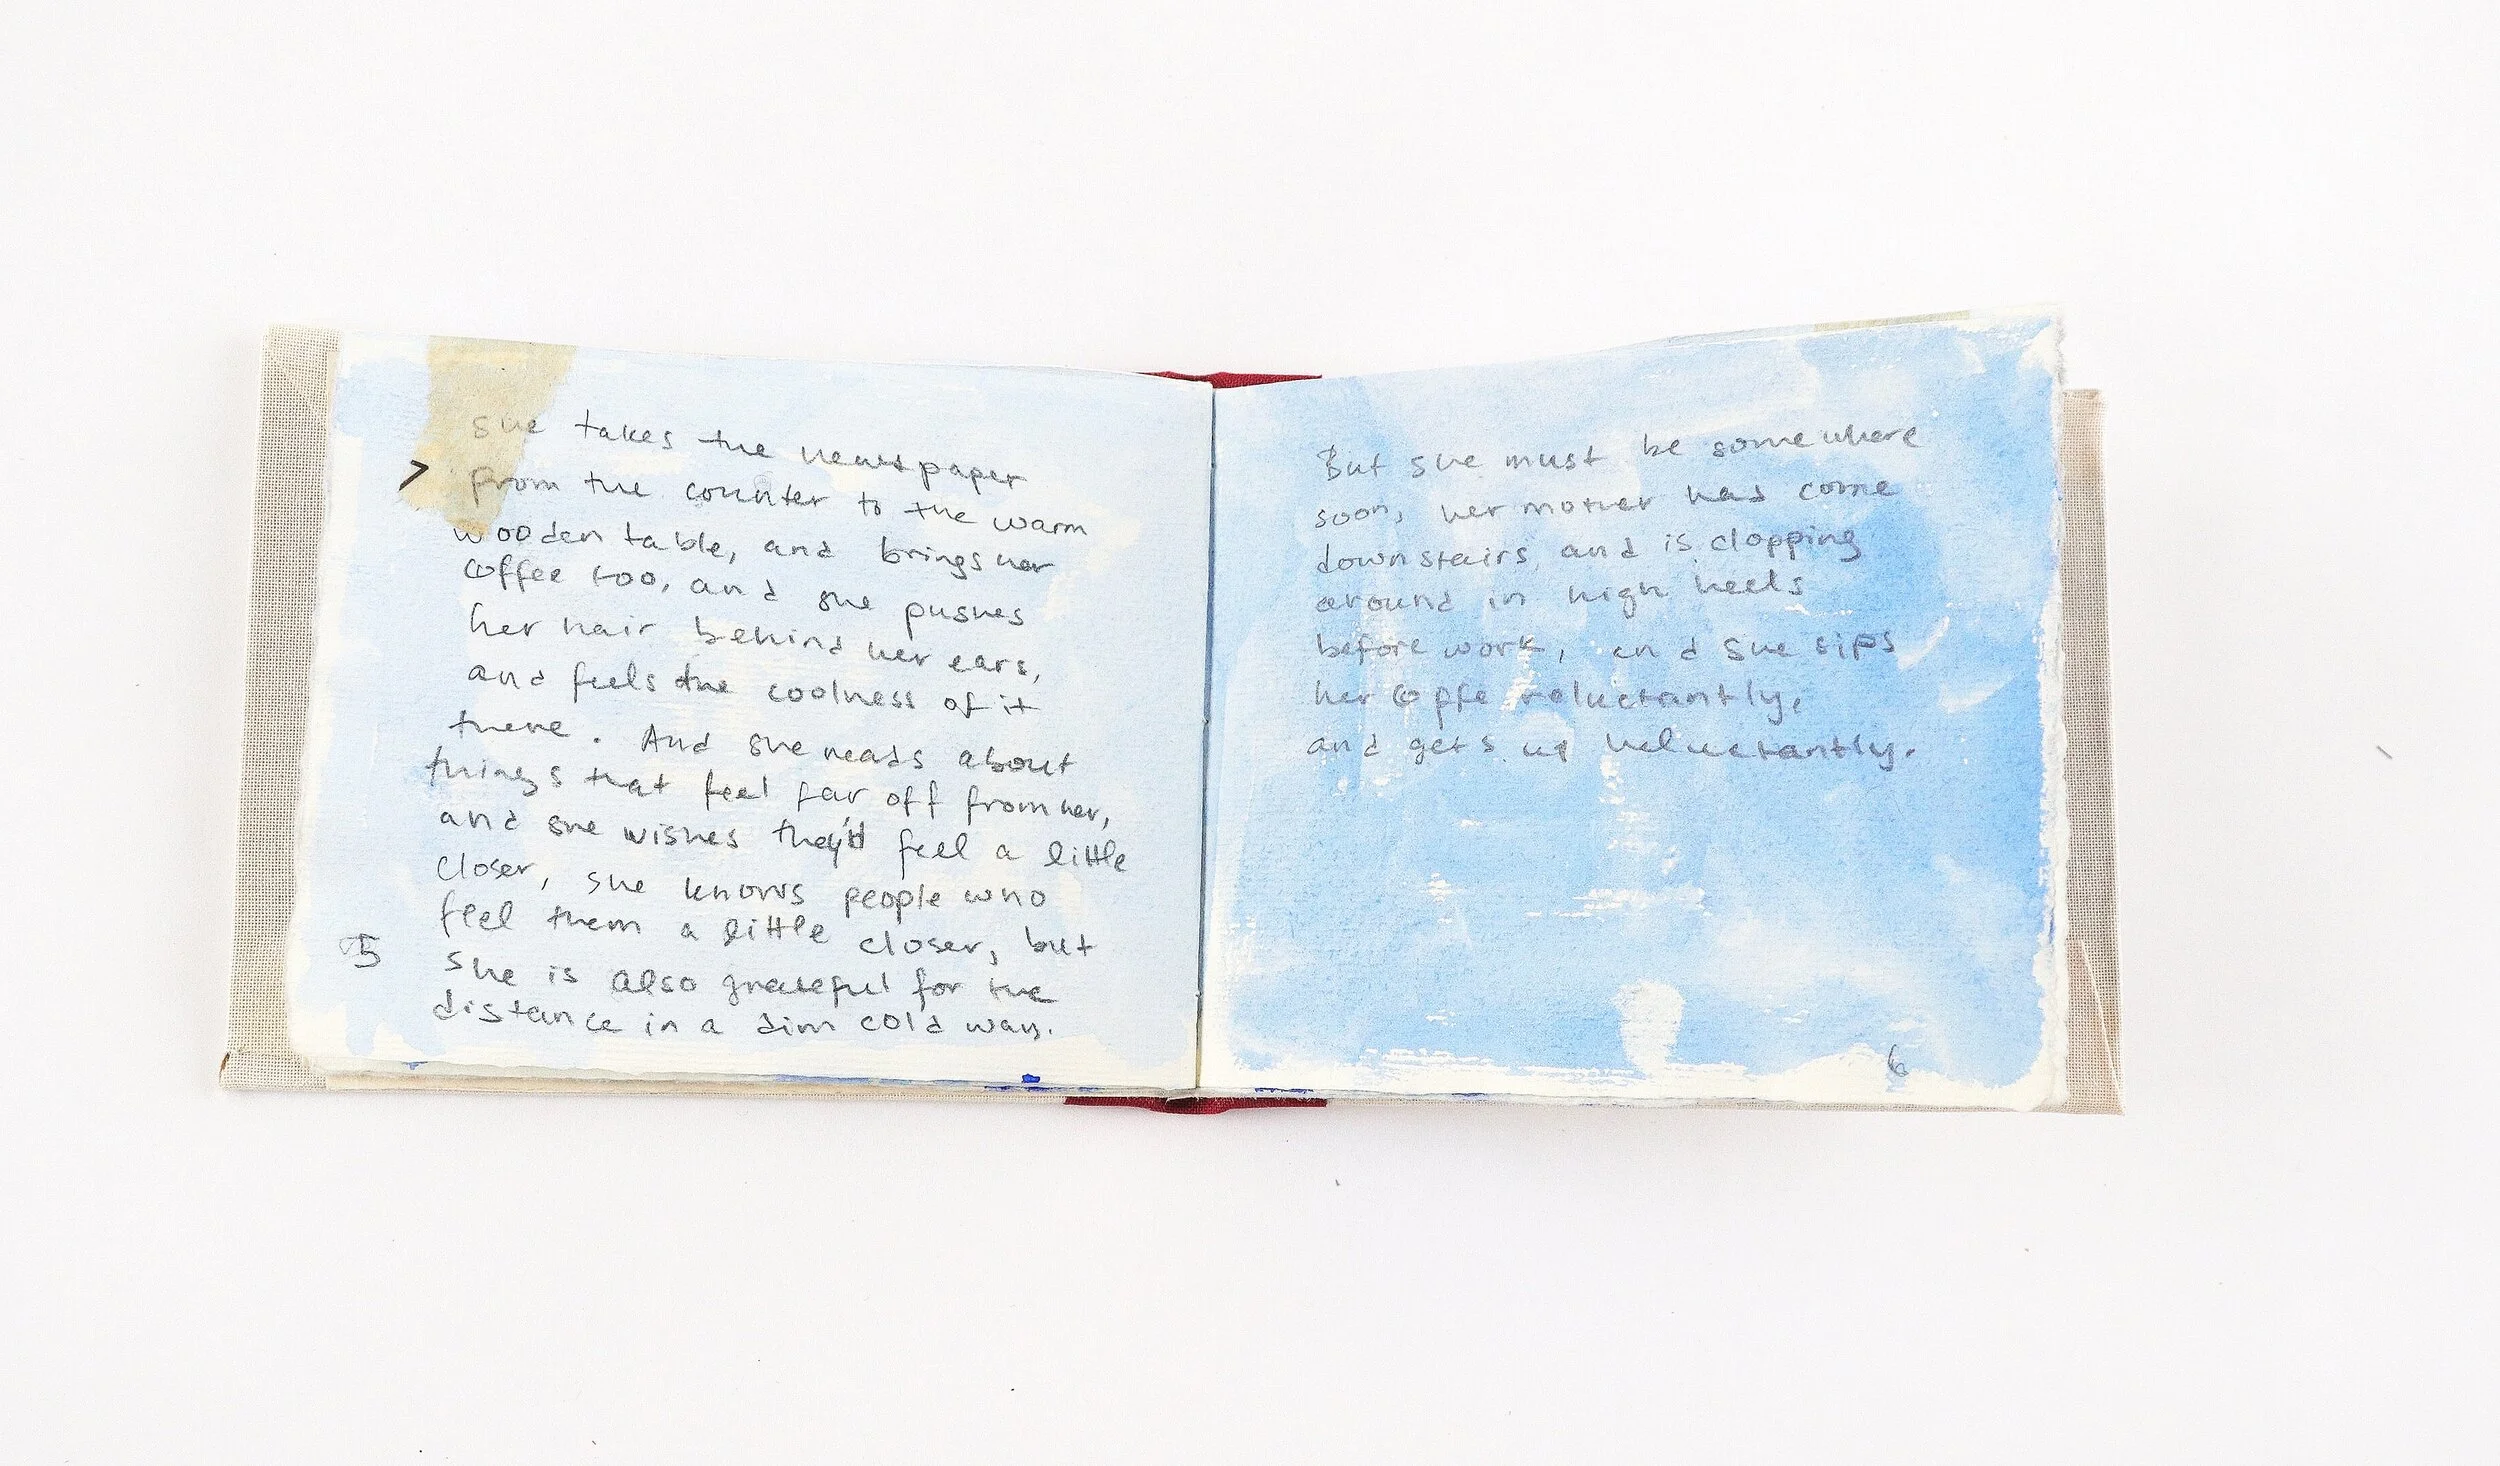 She takes the newspaper
>
from the counter to the warm
wooden table, and brings her
coffee too, and she pushes
her hair behind her ears,
and feels the coolness of it
there. And she reads about
things that feel far off from her,
and she wishes they'd feel a little
closer, she knows people who
feel them a little closer, but
she is also grateful for the
distance in a dim cold way.
5
But she must be somewhere
soon, her mother has come
downstairs and is clopping
around in high heels
before work, and she sips
her coffe reluctantly,
and gets up reluctantly.
6